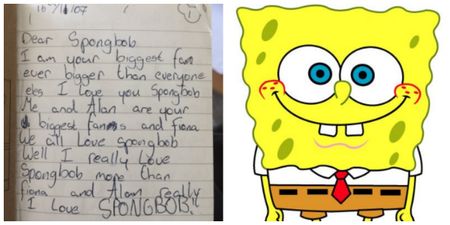 16/11/07
Dear Spongbob
I am your biggest fan
ever bigger than everyone
els I love you Spongbob
Me and Alan are your
biggest fans and fiona
We all Love spongbob
Well I really love
Spongbob more than
fiona and Alan really
I love SPONGBOB!!